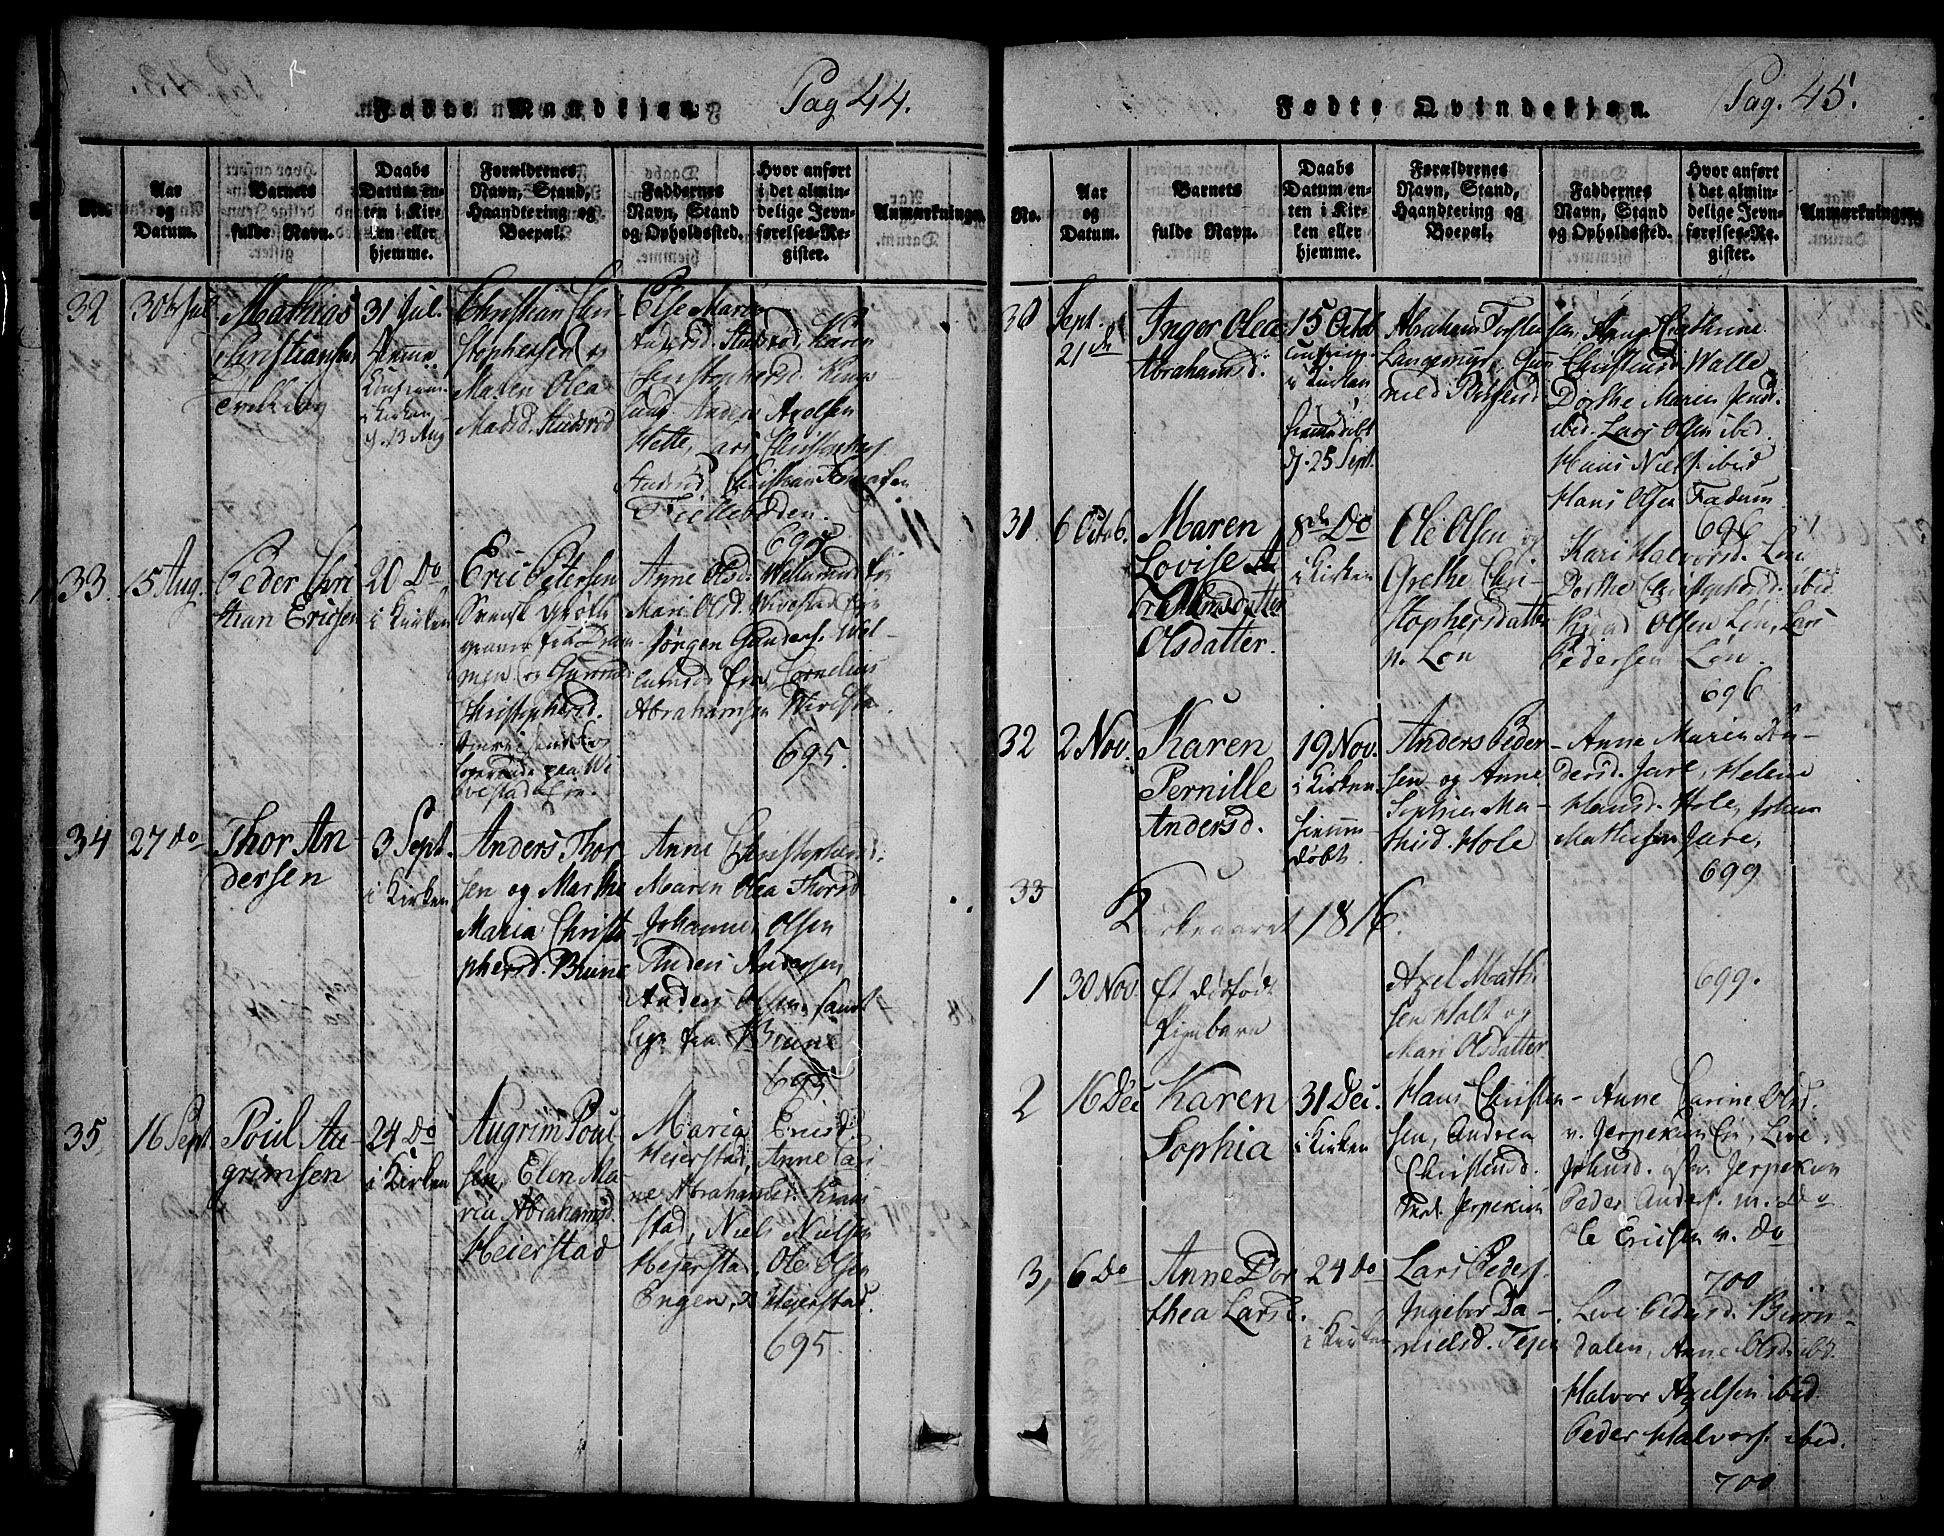 Fødte Mandkjøn.
Pag 44.
No.
Aar
og
Datum.
Barnets
fulde Navn.
Daabs
Datum en-
ten i Kir-
ken eller
hjemme.
Forældrenes
Navn, Stand,
Haandtering og
Boepæl.
Faddernes
Navn, Stand
og Opholdssted.
Hvor anført
i det almin-
delige Jevn-
førelses-Re-
gister.
Anmærkninger.
32
30te Jul
Mathias
Christiansen
31 Jul.
hjemme
i Kirken
d. 13 Aug
Christian Chri-
stophersen og
Maren Olea
Madsd. Studsrød
Else Maria
Andersd. Studsrød, Karen
Christophersd.
Anders Axelsen
Christopher
Studsrød, Christian
Fieldebøden.
695
33.
15 Aug.
Peder Chri
stian Ericsen
20 Do
i Kirken
Eric Petersen
Svensk Grøft-
graver fra Dram
men og Gunnild
Christophersd.
Anne Olsd. Wellumrud
Mari Olsd. Wivestad
Jørgen Gunders. Wel-
lumrud Cornelius
Abrahamsen Wivestad.
695.
34
27 do
Thor An
dersen
3 Sept.
i Kirken
Anders Thor
sen og Marthe
Maria Christo
phersd. Brune
Anne Christophersd.
Maren Olea Thorsd
Johannes Olsen
Anders Andersen
Anders Olsen samt
lige fra Brune
695
35,
16 Sept.
Poul Au-
grimsen
24 Do
i Kirken
Augrim Poul
sen, Elen Ma-
ria Abrahamsd.
Heierstad
Maria Ericsd.
Heierstad, Anne Cari-
ne Abrahamsd.
stad, Niels Nielsen
Hejerstad, Ole Olsen
Engen, Heierstad.
695.
Fødte Qvindekjøn.
Pag. 45.
No.
Aar
og
Datum.
Barnets
fulde Navn.
Daabs
Datum en-
ten i Kir-
ken eller
hjemme.
Forældrenes
Navn, Stand,
Haandtering og
Boepæl.
Faddernes
Navn, Stand
og Opholdssted.
Hvor anført
i det almin-
delige Jevn-
førelses-Re-
gister.
Anmærkninger.
30
Sept.
21de
Inger Olea
Abrahamsd.
15 Octob
i Kirken
hjemmedøbt
d. 25 Sept.
Abraham Torsten
sen, Cathrine
Langemyr, Gun
nild
Christensd. Walle,
Dorthe Maria Jensd.
ibid. Lars Olsen ibid.
Hans Niels. ibid
Hans Olsen Fadum
696
31
6 Octob.
Maren
Lovise
Olsdatter.
8de Do
i Kirken
Ole Olsen og
Grethe Chri-
stophersdatter
n. Løn
Kari Halvorsd. Løn
Dorthe Christophersd. ibid.
Olsen Løn, Lars
Pedersen Løn.
696
32
2 Nov.
Karen
Pernille
Andersd.
19 Nov.
i Kirken
hjemme-
døbt.
Anders Peder
sen og Anne
Sophie Ma-
thisd. Hole
Anne Marie An-
dersd. Jare, Helene
Hansd. Hole, Johan
Mathisen Jare,
699
33
Kirkeaaret 1816.
1
30 Nov.
Et dødfødt
Pigebarn
Axel Math
sen Holt og
Mari Olsdatter
699.
2
16 Dec
Karen
Sophia
31 Dec.
i Kirken
Hans Christen
sen, Andrea
Christensd.
Jerpekiin
Anne Carine Olsd.
v. Jerpekiin, Live
Johnsd. østre Jerpekiin
Peder Anders. m. Do
Ole Ericsen v. Do
700
3,
6 Do
Anne Dor
thea Larsd.
24 Do
i Kirken
Lars Peders.
Ingebor Da-
nielsd. Tejen
Live Pedersd. Biørn-
dalen, Anne Olsd. ibd.
Halvor Axelsen ibid
Peder Halvors. ibid.
700